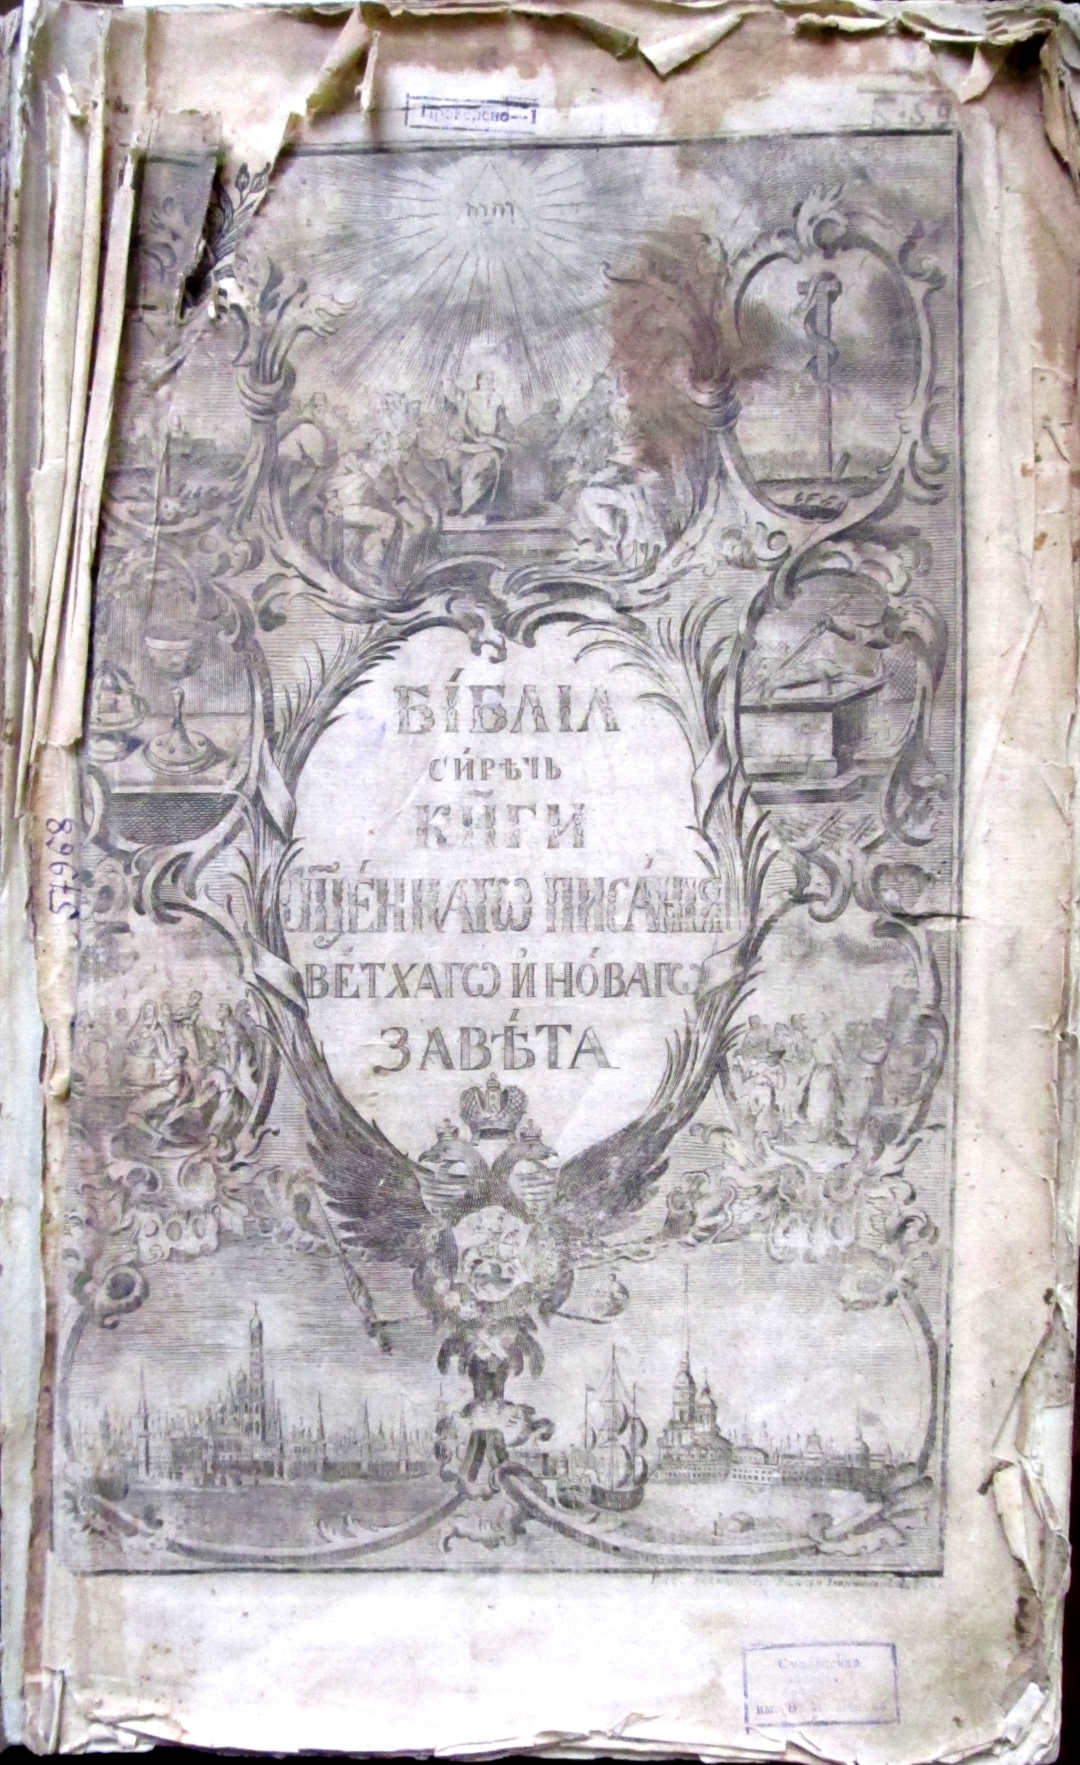 Проверено—1
יהוה
БІ́БЛІА
СИ́РѢЧЬ
КНИ҃ГИ
СЩ҃Е́ННАГѠ ПИСА́НІѦ
ВЕ́ТХАГѠ И҆ НО́ВАГѠ
ЗАВѢ́ТА
57968
Смоленская